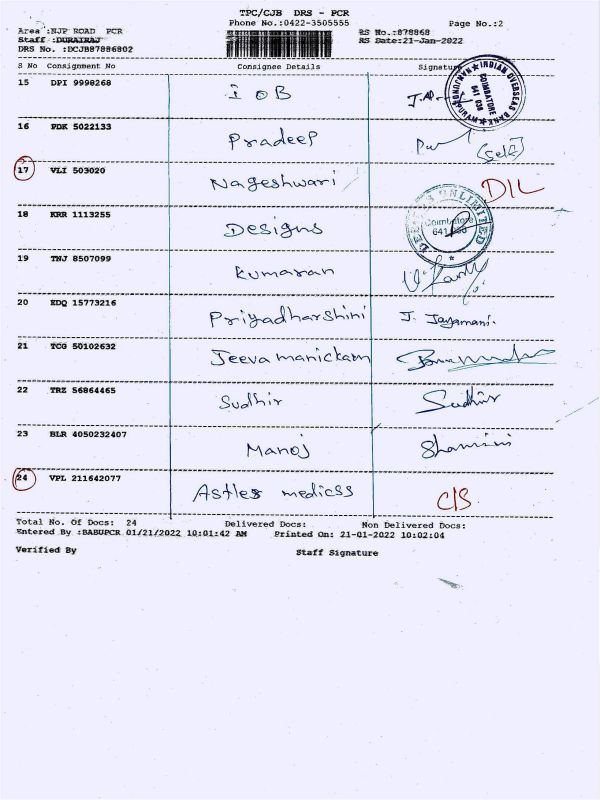 TPC/CJB DRS - PCR
Phone No.:0422-3505555 Page No.:2
Area :NJP ROAD PCR RS No.:878868
Staff :DURAIRAJ RS Date:21-Jan-2022
DRS No. :DCJB87886802
S No Consignment No Consignee Details Signature
15 DPI 9998268 IOB
INDIAN OVERSEAS BANK COIMBATORE 641 038
16 PDK 5022133 Pradeep (Self)
17 VLI 503020 Nageshwari DIL
18 KRR 1113255 Designs
UNLIMITED Coimbatore 641
19 TNJ 8507099 Kumaran
20 EDQ 15773216 Priyadharshini J. Jayamani.
21 TCG 50102632 Jeeva manickam
22 TRZ 56864465 Sudhir Sudhir
23 BLR 4050232407 Manoj Shamini
24 VPL 211642077 Astles medicss C/S.
Total No. Of Docs: 24 Delivered Docs: Non Delivered Docs:
Entered By :BABUPCR 01/21/2022 10:01:42 AM Printed On: 21-01-2022 10:02:04
Verified By Staff Signature